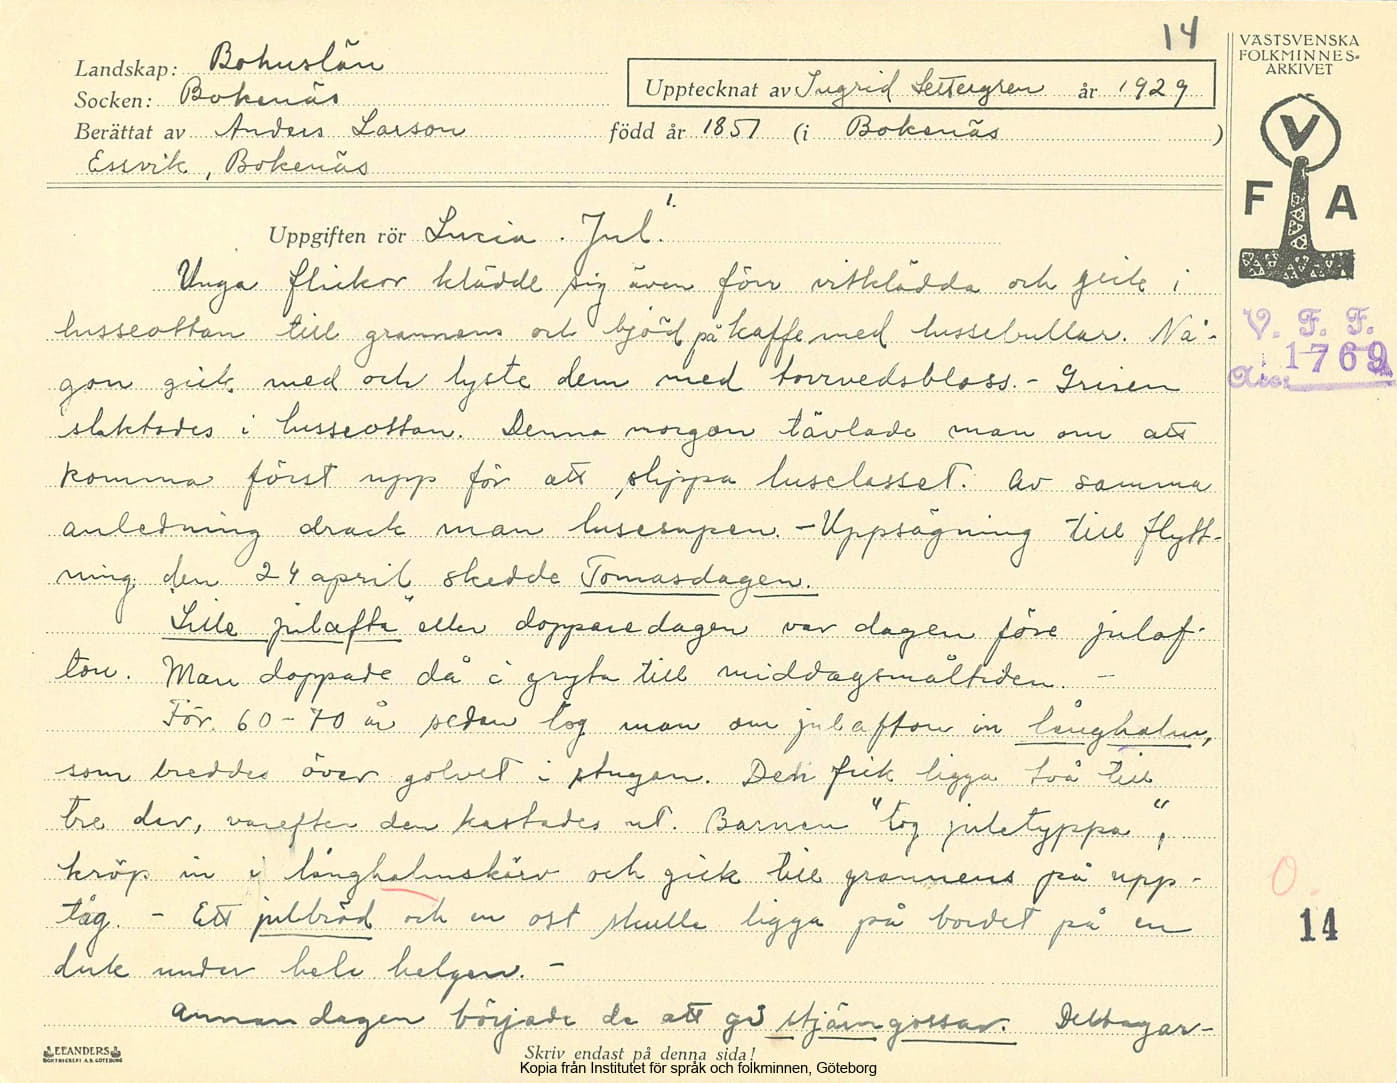 14
Landskap: Bohuslän
Socken: Bokenäs
Upptecknat av Ingrid Settergren år 1929
Berättat av Anders Larson född år 1851 (i Bokenäs )
Essvik, Bokenäs
Uppgiften rör Lucia. Jul. 1.
Unga flickor klädde sig även förr vitklädda och gick i
lusseottan till grannens och bjöd på kaffe med lussebullar. Nå-
gon gick med och lyste dem med torrvedsbloss. - Grisen
slaktades i lusseottan. Denna morgon tävlade man om att
komma först upp för att slippa luselasset. Av samma
anledning drack man lusesupen. - Uppsägning till flytt-
ning den 24 april skedde Tomasdagen.
"Lille julafta" eller dopparedagen var dagen före julaf-
ton. Man doppade då i gryta till middagsmåltiden. -
För 60-70 år sedan tog man om julafton in långhalm,
som breddes över golvet i stugan. Den fick ligga två till
tre dar, varefter den kastades ut. Barnen "tog juletyppa",
kröp in i långhalmskärv och gick till grannens på upp-
tåg. - Ett julbröd och en ost skulle ligga på bordet på en
duk under hela helgen. -
Annandagen började de att gå stjärngossar. Deltagar-
LEEANDERS
BOKTRYCKERI A.B. GÖTEBORG
Skriv endast på denna sida!
Kopia från Institutet för språk och folkminnen, Göteborg
VÄSTSVENSKA
FOLKMINNES-
ARKIVET
V
F A
V. F. F.
1769
Acc.
0.
14